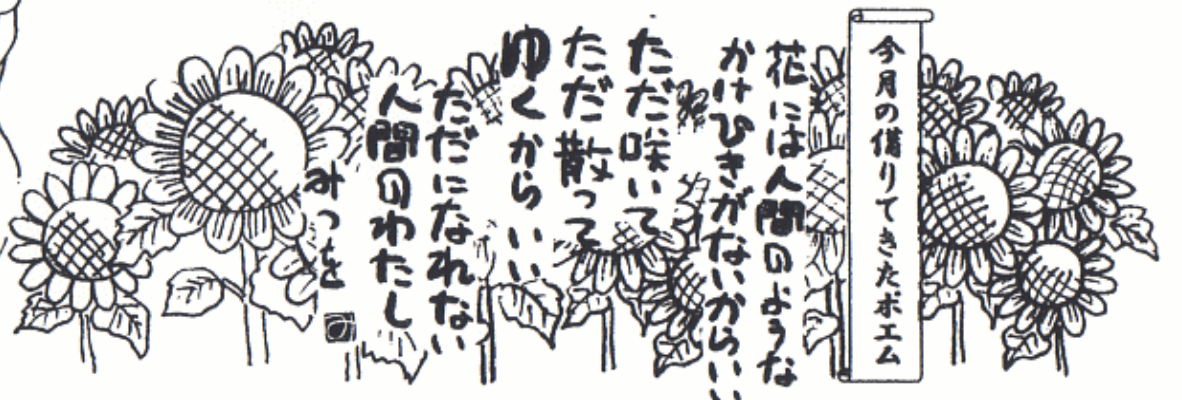 今月の借りてきたポエム
花には人間のような
かけひきがないからいい
ただ咲いて
ただ散って
ゆくからいい
ただになれない
人間のわたし
みつを